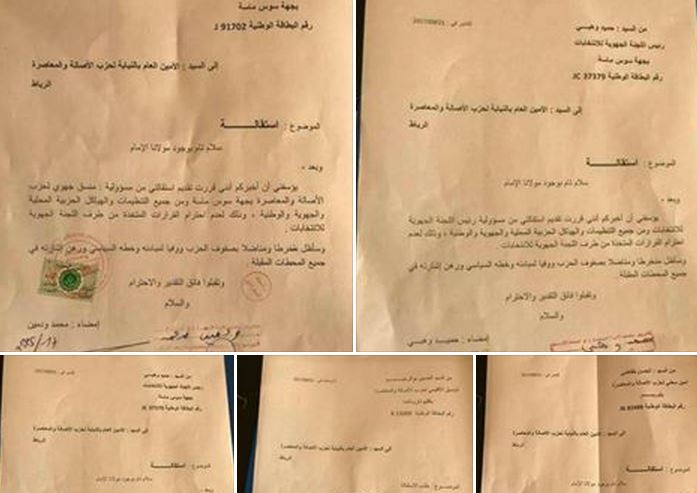 بجهة سوس ماسة
رقم البطاقة الوطنية J 91702
إلى السيد : الأمين العام بالنيابة لحزب الأصالة والمعاصرة
الرباط
الموضوع : استقالــــــــة
سلام تام بوجود مولانا الإمام
وبعد ،
يؤسفني أن أخبركم أنني قررت تقديم استقالتي من مسؤولية : منسق جهوي لحزب
الأصالة والمعاصرة بجهة سوس ماسة ومن جميع التنظيمات والهياكل الحزبية المحلية
والجهوية والوطنية ، وذلك لعدم احترام القرارات المتخذة من طرف اللجنة الجهوية
للانتخابات .
وسأظل منخرطا ومناضلا بصفوف الحزب ووفيا لمبادئه وخطه السياسي ورهن إشارته في
جميع المحطات المقبلة .
وتقبلوا فائق التقدير والاحترام
والسلام
إمضاء : محمد ودمين
من السيد : حميد وهبي
رئيس اللجنة الجهوية للانتخابات
بجهة سوس ماسة
رقم البطاقة الوطنية JC 37379
إلى السيد : الأمين العام بالنيابة لحزب الأصالة والمعاصرة
الرباط
الموضوع : استقالــــــــة
سلام تام بوجود مولانا الإمام
وبعد ،
يؤسفني أن أخبركم أنني قررت تقديم استقالتي من مسؤولية رئيس اللجنة الجهوية
للانتخابات ومن جميع التنظيمات والهياكل الحزبية المحلية والجهوية والوطنية ، وذلك لعدم
احترام القرارات المتخذة من طرف اللجنة الجهوية للانتخابات .
وسأظل منخرطا ومناضلا بصفوف الحزب ووفيا لمبادئه وخطه السياسي ورهن إشارته في
جميع المحطات المقبلة
وتقبلوا فائق التقدير والاحترام
والسلام
إمضاء : حميد وهبي
من السيد : حميد وهبي
رئيس اللجنة الجهوية للانتخابات
بجهة سوس ماسة
رقم البطاقة الوطنية JC 37379
إلى السيد : الأمين العام بالنيابة لحزب الأصالة والمعاصرة
الرباط
الموضوع : استقالــــــــة
سلام تام بوجود مولانا الإمام
وبعد ،
من السيد الحسين
رقم البطاقة الوطنية
إلى السيد : الأمين العام بالنيابة لحزب الأصالة والمعاصرة
الرباط
الموضوع : طلب الاستقالة
من السيد :
أمين محلي لحزب الأصالة والمعاصرة
رقم البطاقة الوطنية
إلى السيد : الأمين العام بالنيابة لحزب الأصالة والمعاصرة
الرباط
الموضوع : استقالــــــــة
سلام تام بوجود مولانا الإمام